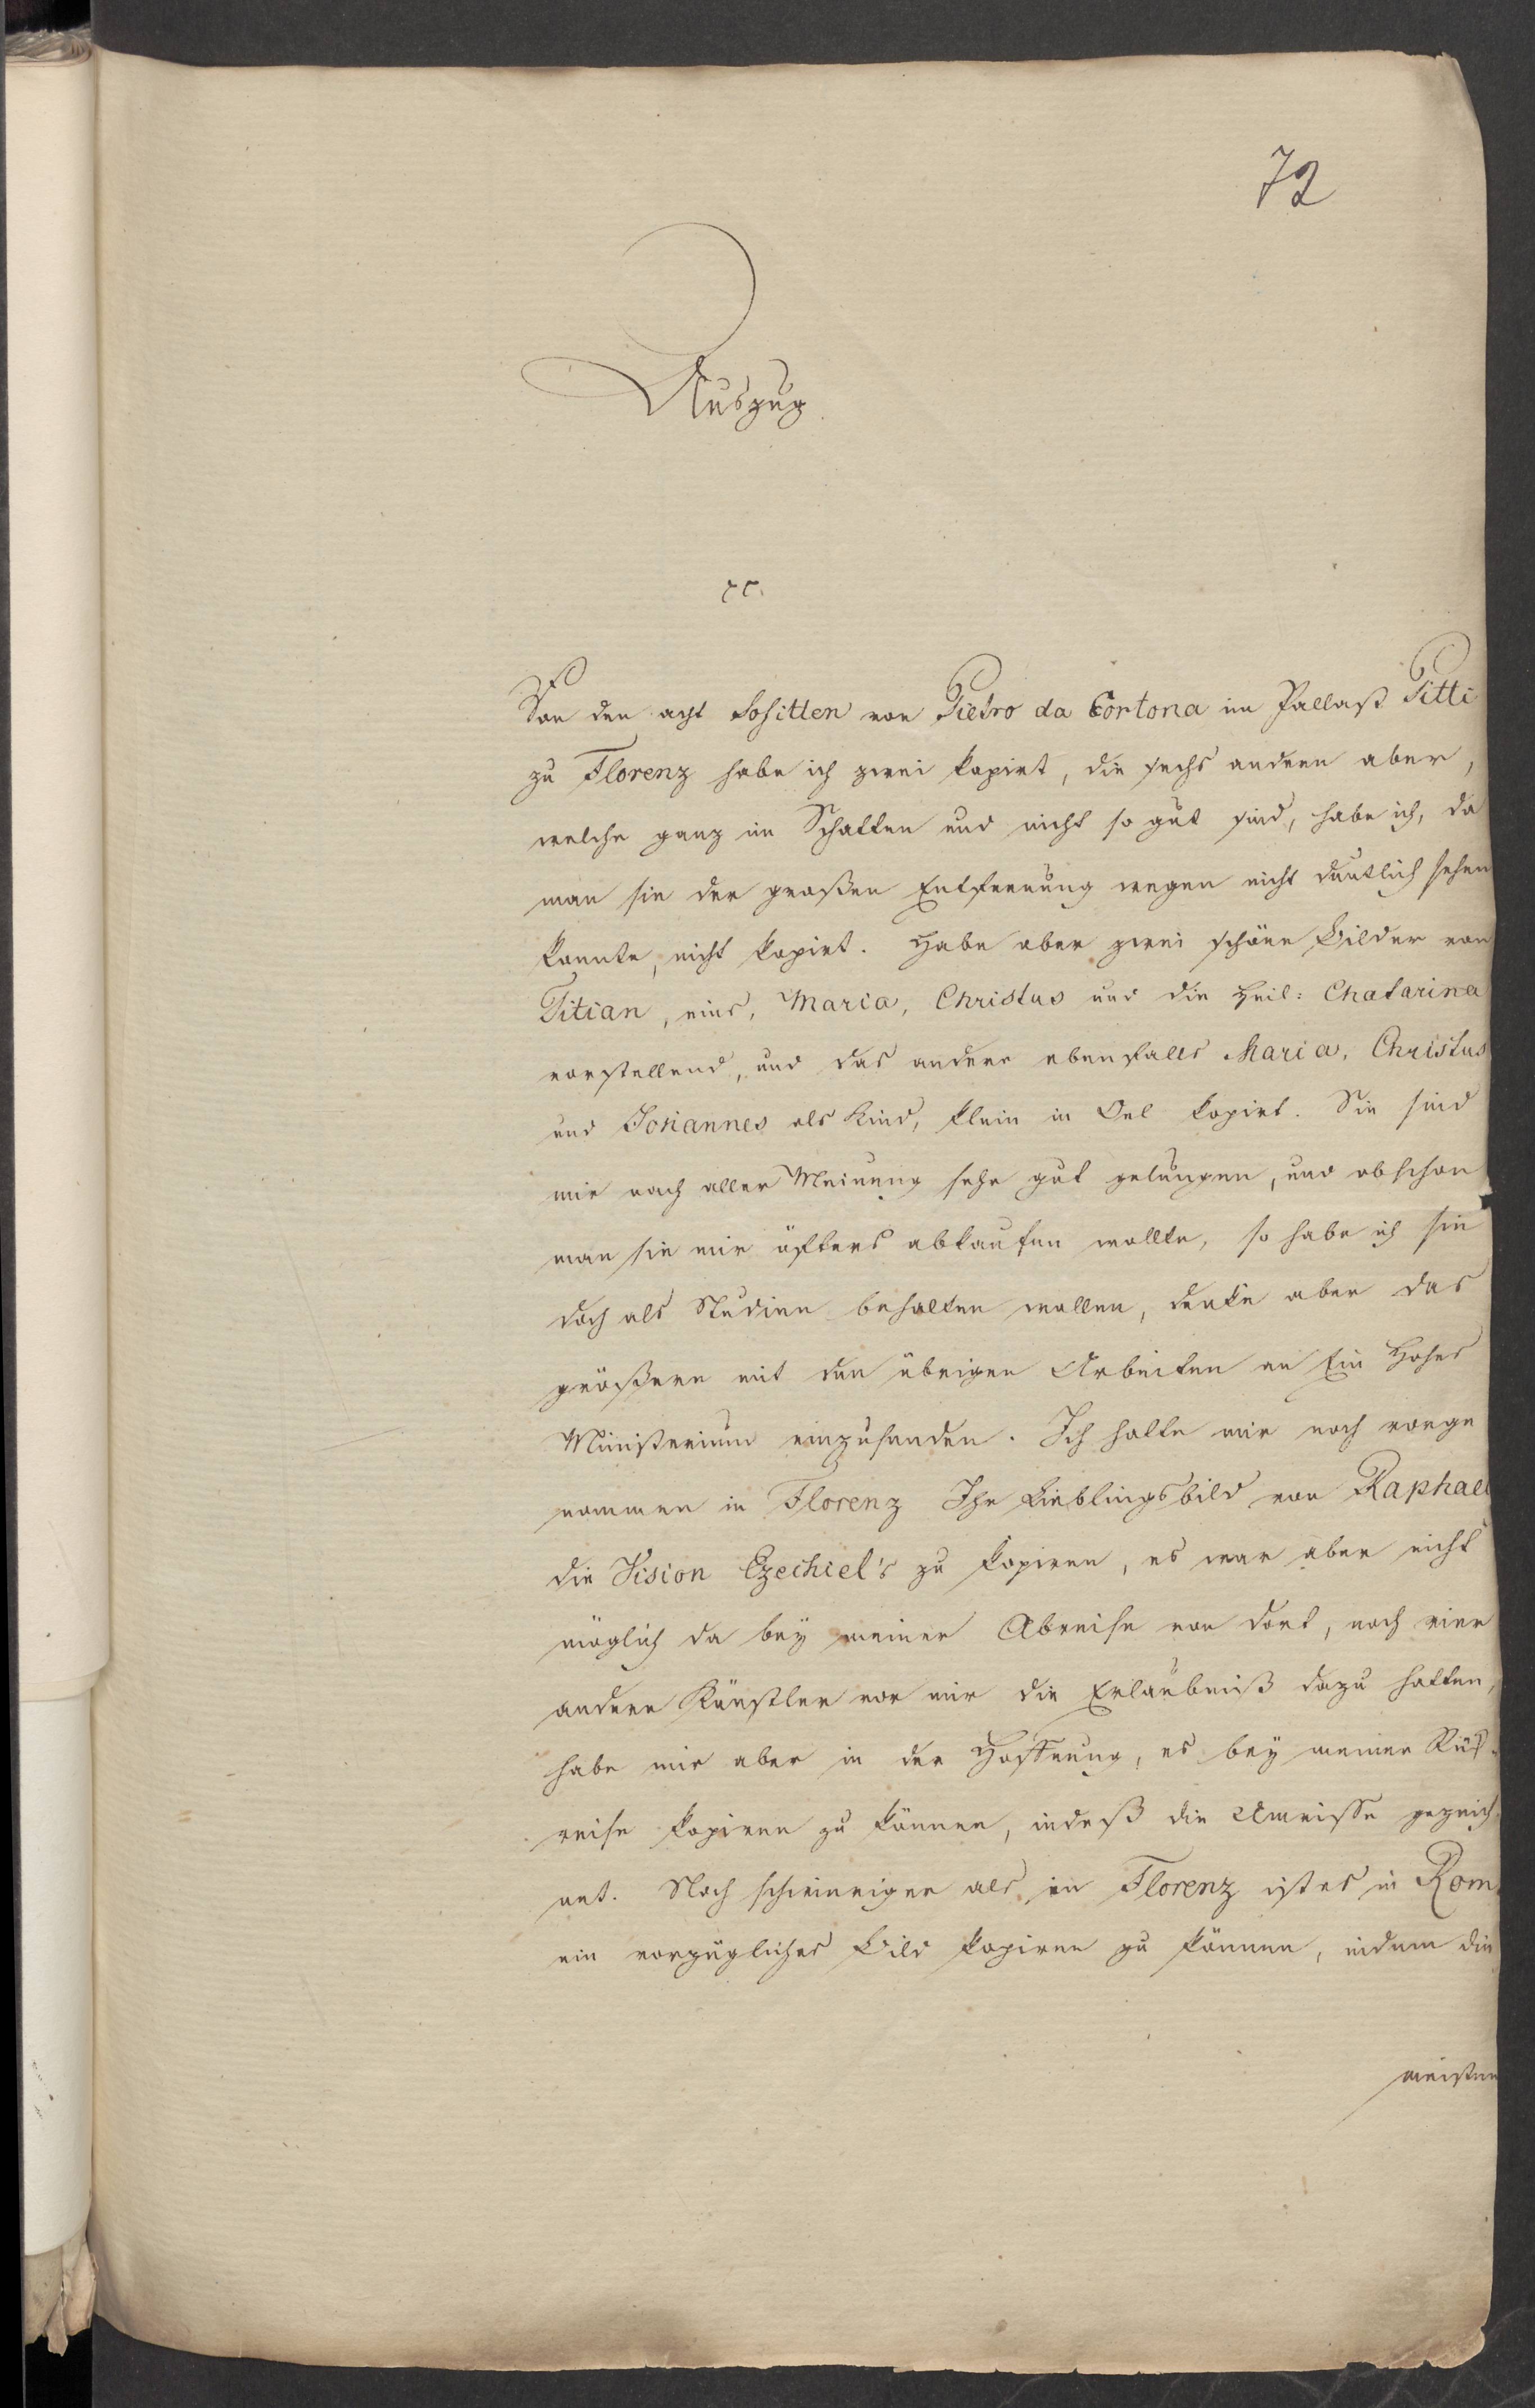 72
Auszug
rc.
Von den acht Sofitten von Pietro da Cortona im Pallast Pitti
zu Florenz habe ich zwei kopirt, die sechs andern aber,
welche ganz im Schatten und nicht so gut sind, habe ich, da
man sie der großen Entfernung wegen nicht deutlich sehen
konnte, nicht kopirt. Habe aber zwei schöne Bilder von
Titian, eins, Maria, Christus und die Heil: Chatarina
vorstellend, und das andere ebenfalls Maria, Christus
und Johannes als Kind, klein in Oel kopirt. Sie sind
mir nach aller Meinung sehr gut gelungen, und obschon
man sie mir öfters abkaufen wollte, so habe ich sie
doch als Studien behalten wollen, denke aber das
größere mit den übrigen Arbeiten an Ein Hohes
Ministerium einzusenden. Ich hatte mir noch vorge
nommen in Florenz Ihr Lieblingsbild von Raphael
die Vision Ezechiel's zu kopiren, es war aber nicht
möglich da bey meiner Abreise von dort, noch vier
andere Künstler vor mir die Erlaubniß dazu hatten,
habe mir aber in der Hoffnung, es bey meiner Rük-
reise kopiren zu können, indeß die Umrisse gezeich-
net. Noch schwieriger als in Florenz ist es in Rom
ein vorzügliches Bild kopiren zu können, indem die
meisten